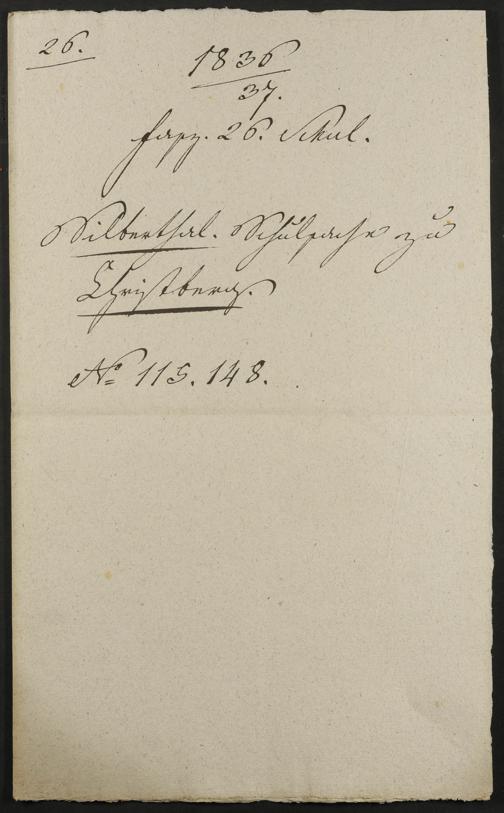 26.
1836
37.
Fasz. 26. Schul.
Silberthal. Schulsache zu
Christberg.
No 115. 148.